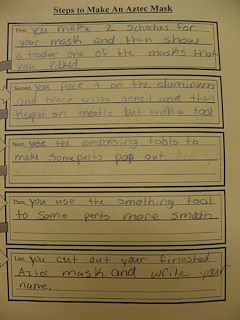 Steps to Make An Aztec Mask
First, you make 2 scheches for
your mask and then show
a teacher one of the masks that
you picked
Second, you place it on the aluminum
and trace with pencil and then
on but with a tool
Next, use the embossing tools to
make some parts pop out.
Then, you use the smothing tool
to some parts more smoth
Last, you cut out your fineshed
Aztec mask and write your
name.